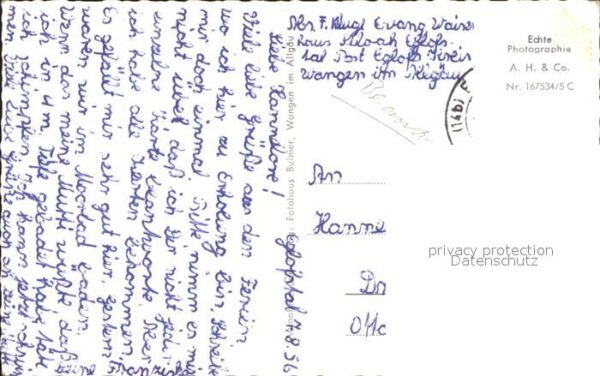 Abs. F. Klug Evang. Waisen
haus Siloah Eglofs
tal Post Eglofs Kreis
Wangen im Allgäu
Echte
Photographie
A. H. & Co.
Nr. 167534/5 C
An
Hanne
Dr
Otto
privacy protection
Datenschutz
Fotohaus Bulmer, Wangen im Allgäu
Eglofstal 7.8.56
Liebe Hannelore!
Viele liebe Grüße aus den Ferien
wo ich hier zu Erholung bin. Schreibe
mir doch einmal. Bitte nimm es mir
nicht übel daß ich Dir nicht jede
einzelne Karte beantworte. Aber
ich habe alle Karten bekommen.
Es gefällt mir sehr gut hier. Gestern
waren wir im Moorbad baden.
Wenn das meine Mutti wüßte daß
ich in 4 m Tiefe gebadet habe
ich schimpfen. Ich kann jetzt